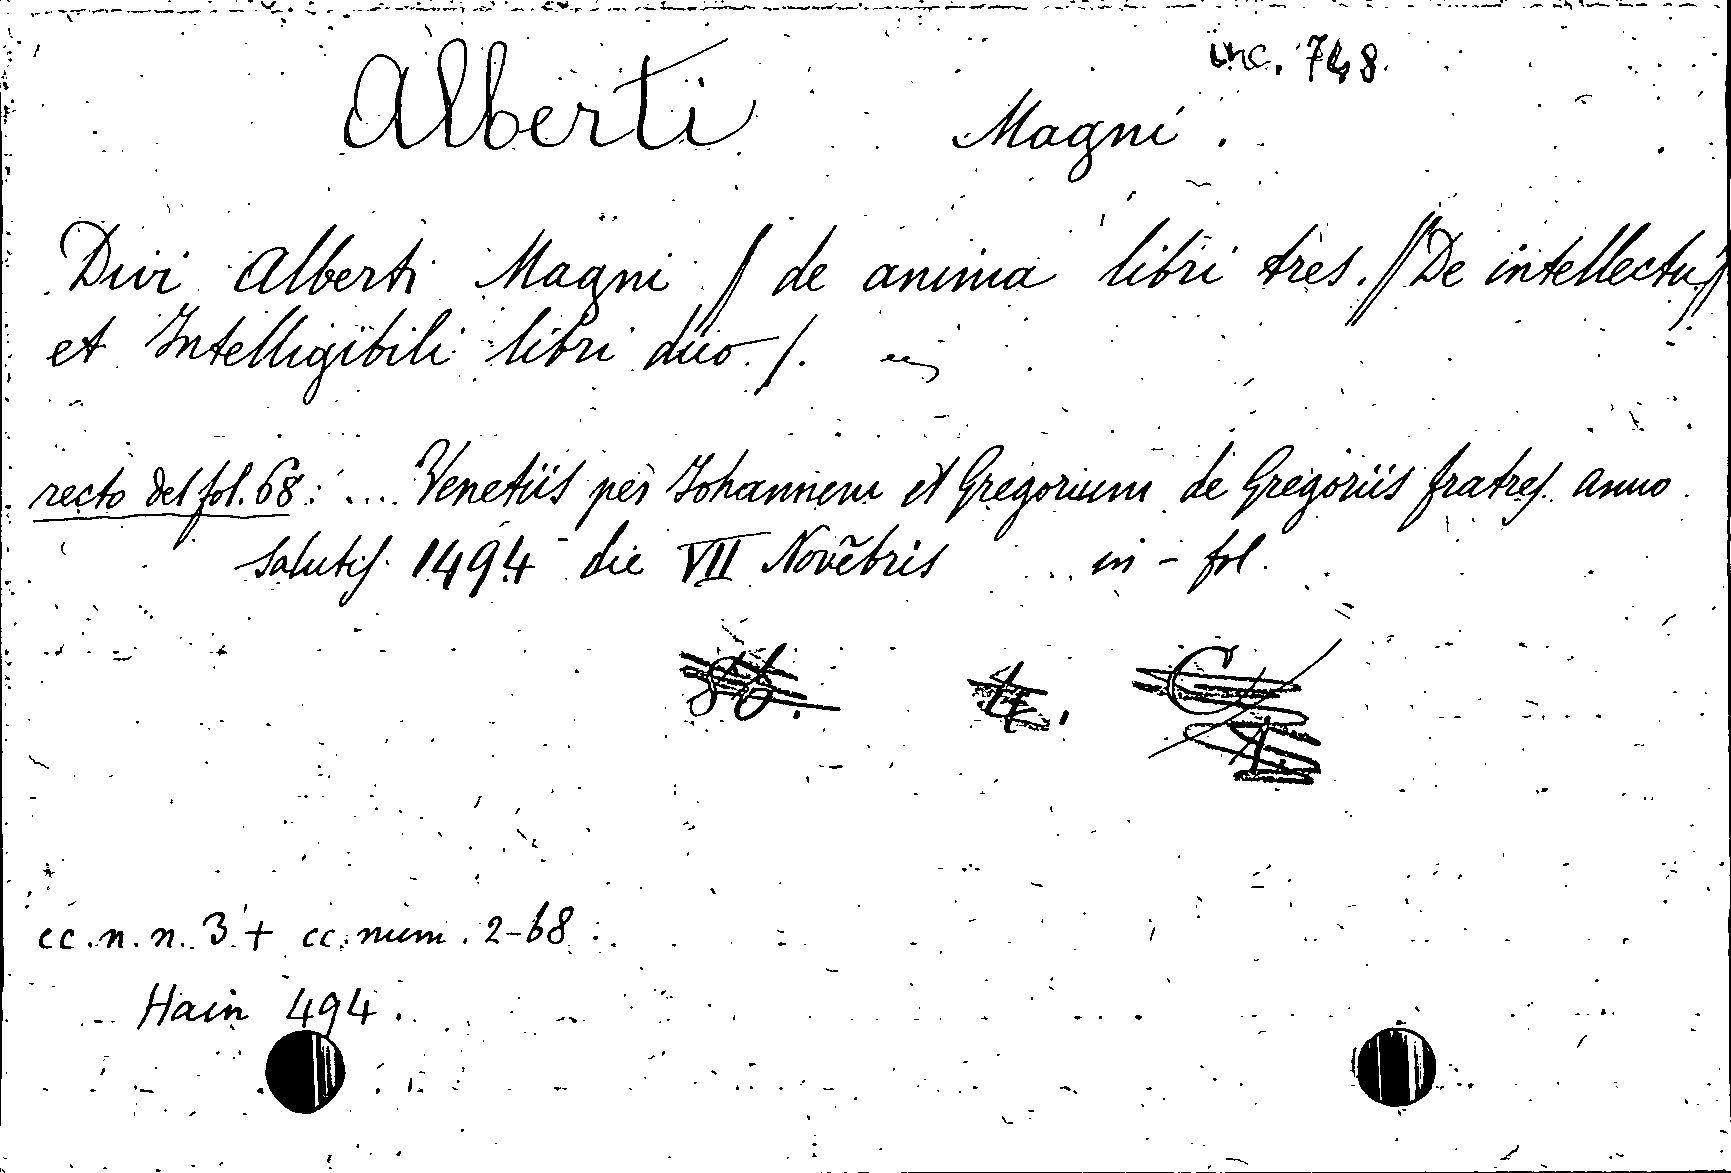 inc. 748.
Alberti Magni.
Divi Alberti Magni / de anima libri tres. // De intellectu //
et Intelligibili libri duo. /.
recto del fol. 68: ... Venetiis per Johannem et Gregorium de Gregoriis fratres. anno
salutis. 1494 die VII Novẽbris in - fol.
cc. n. n. 3 + cc. num. 2-68.
Hain 494.